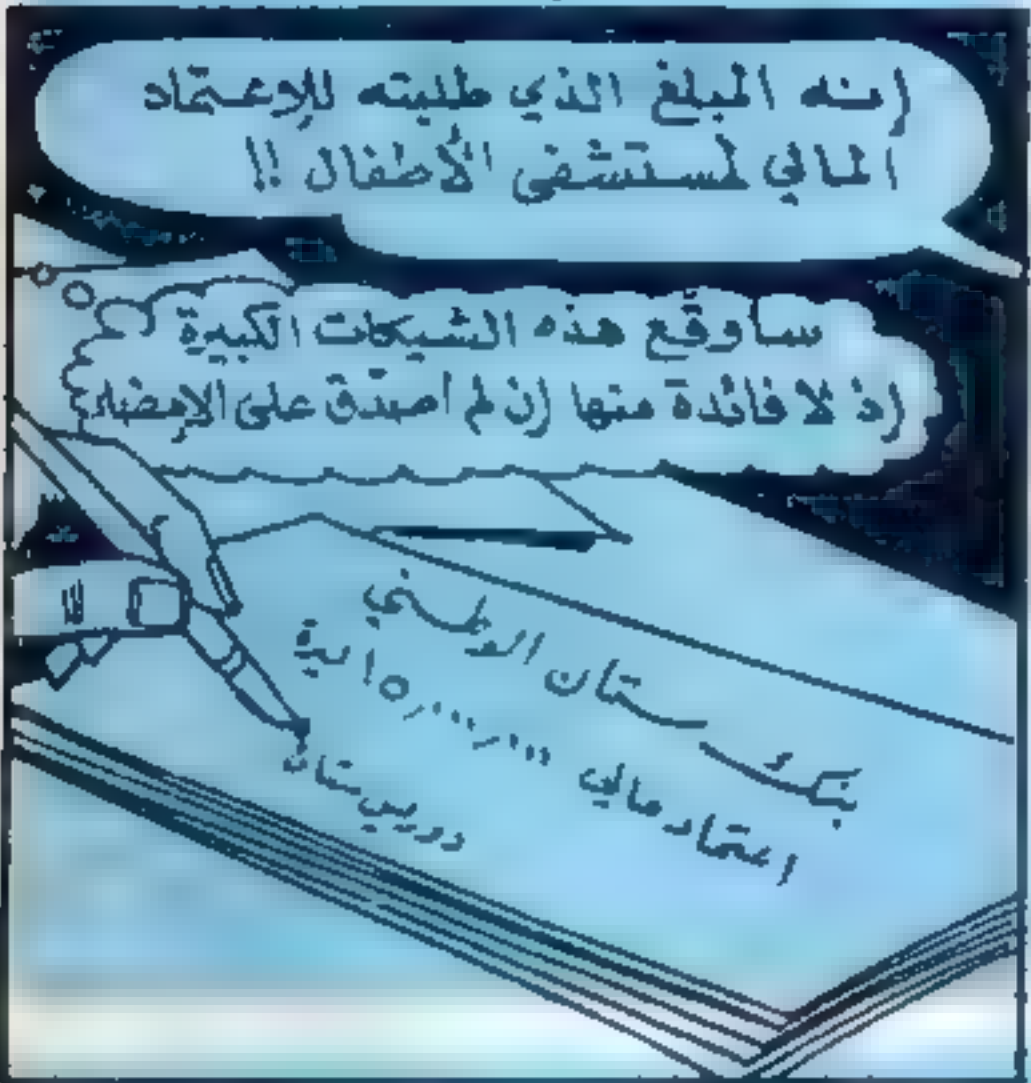 إنه المبلغ الذي طلبته للإعتماد
المالي لمستشفى الأطفال !!
سأوقّع هذه الشيكات الكبيرة
إذ لا فائدة منها إن لم أصدّق على الإمضاء
بنك ستان الوطني
اعتماد مالي ١٥,٠٠٠,٠٠٠ ليرة
دوريس ستان